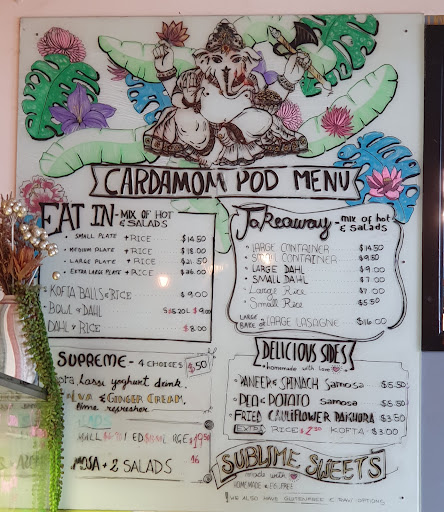 CARDAMOM POD MENU
EAT IN - MIX OF HOT & SALADS
• SMALL PLATE + RICE $14.50
• MEDIUM PLATE + RICE $18.00
• LARGE PLATE + RICE $21.50
EXTRA LARGE PLATE + RICE $26.00
• KOFTA BALLS & RICE $9.00
• BOWL & DAHL
DAHL & RICE $8.00
SUPREME - 4 CHOICES
Lassi yoghurt drink
& GINGER CREAM,
lime refresher
MOSA + 2 SALADS
Takeaway - mix of hot & salads
• LARGE CONTAINER $14.50
• SMALL CONTAINER $9.50
• LARGE DAHL $9.00
• SMALL DAHL $7.00
• Large Rice $7.00
• Small Rice $5.50
LARGE LASAGNE
DELICIOUS SIDES
homemade with love
PANEER & SPINACH Samosa $5.50
PEA & POTATO Samosa $5.50
FRIED CAULIFLOWER PAKHORA $3.50
EXTRA RICE KOFTA $3.00
SUBLIME SWEETS
made with
HOMEMADE & EGG FREE
WE ALSO HAVE GLUTEN FREE & RAW OPTIONS